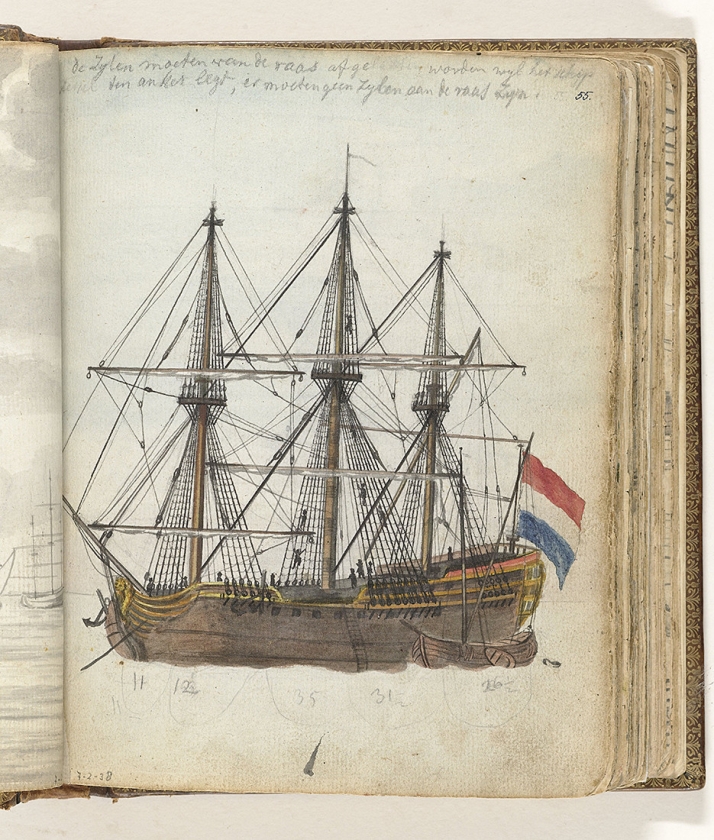 de Zylen moeten van de raas afge worden wyl het schip
ten anker legt, er moeten geen Zylen aan de raas Zyn.
55.
11 12½ 35 31½ 26½
11
7-2-38